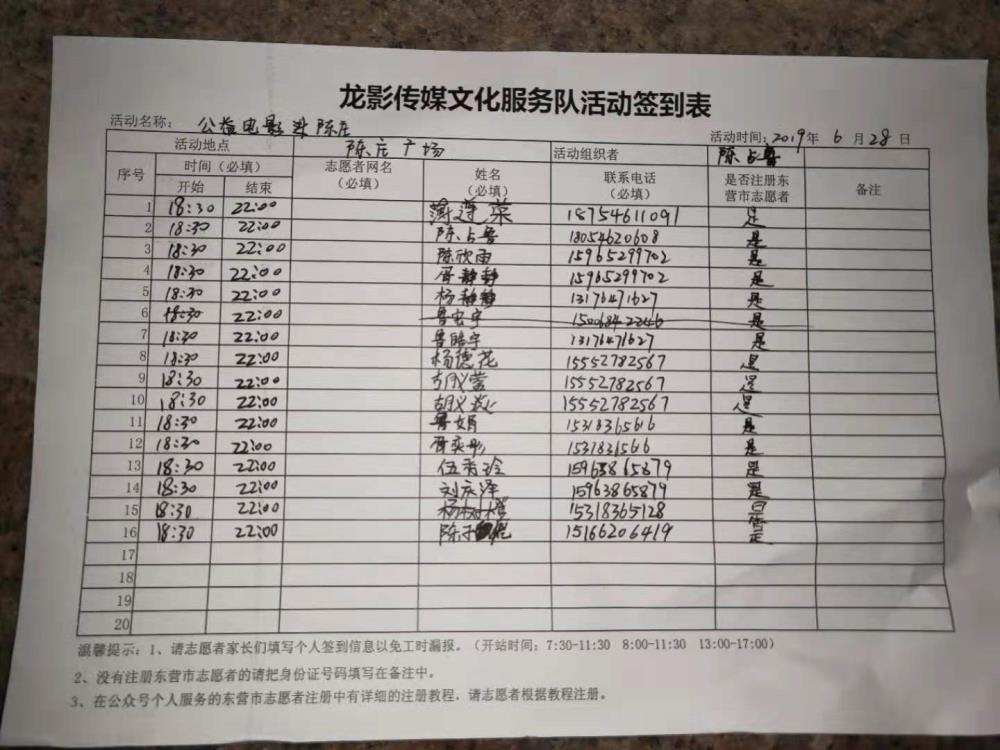 龙影传媒文化服务队活动签到表
活动名称： 公益电影进陈庄 活动时间：2019年 6月28日
活动地点 陈庄广场 活动组织者 陈占鲁
序号 时间（必填） 志愿者网名（必填） 姓名（必填） 联系电话（必填） 是否注册东营市志愿者 备注
开始 结束
1 18:30 22:00 18754611091 是
2 18:30 22:00 陈占鲁 18054620608 是
3 18:30 22:00 陈欣雨 15965299702 是
4 18:30 22:00 胥静静 15965299702 是
5 18:30 22:00 杨静静 13176471627 是
6 18:30 22:00 鲁宏宇 15006842246 是
7 18:30 22:00 鲁皓宇 13176471627 是
8 18:30 22:00 杨德花 15552782567 是
9 18:30 22:00 胡义萱 15552782567 是
10 18:30 22:00 胡义 15552782567 是
11 18:30 22:00 鲁娟 15318365616 是
12 18:30 22:00 胥奕彤 1531836566 是
13 18:30 22:00 伍秀玲 15963865879 是
14 18:30 22:00 刘庆泽 15963865879 是
15 18:30 22:00 15318365128 是
16 18:30 22:00 陈子 15166206419 是
17
18
19
20
温馨提示：1、请志愿者家长们填写个人签到信息以免工时漏报。（开站时间：7:30-11:30 8:00-11:30 13:00-17:00）
2、没有注册东营市志愿者的请把身份证号码填写在备注中。
3、在公众号个人服务的东营市志愿者注册中有详细的注册教程，请志愿者根据教程注册。